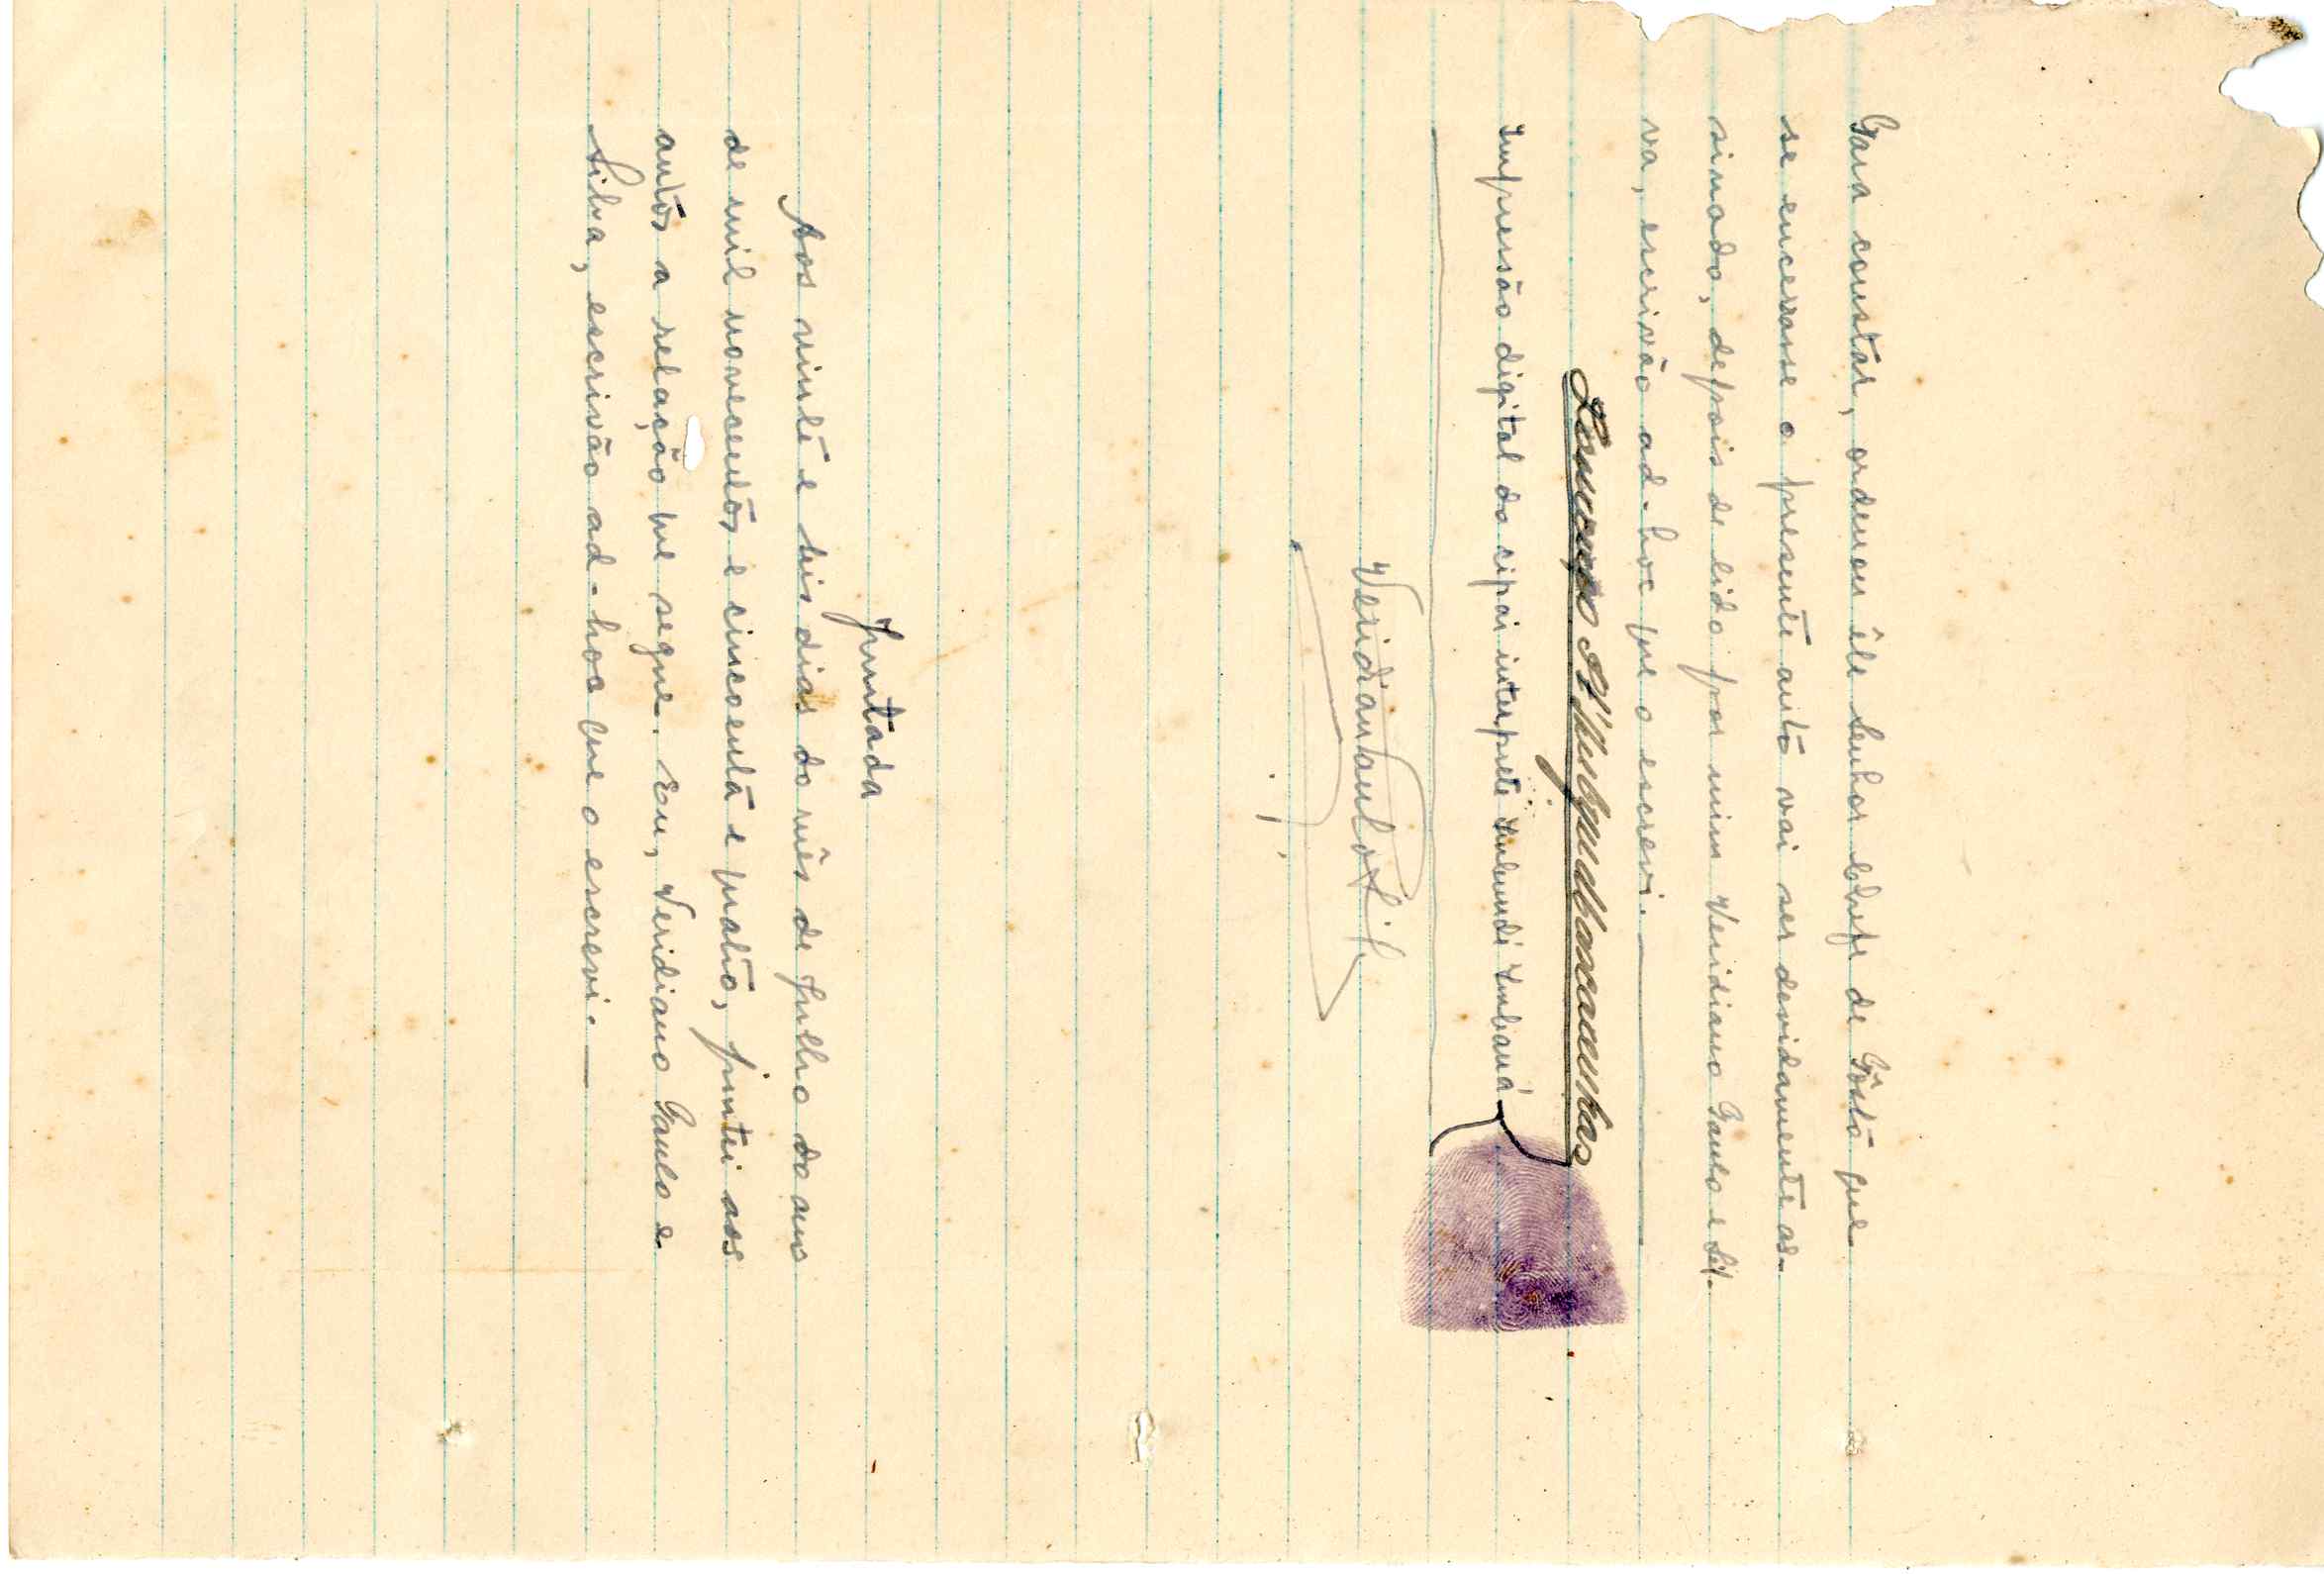 Para constar, ordenou êle Senhor Chefe de Pôsto que
se encerrasse o presente auto vai ser devidamente as-
sinado, depois de lido por mim Veridiano Paulo e Sil-
va, escrivão ad-hoc que o escrevi.
Impressão digital do cipai interprete
Juntada
Aos vinte e seis dias do mês de Julho do ano
de mil novecentos e cincoenta e quatro, juntei aos
autos a relação que segue. Eu, Veridiano Paulo e
Silva, escrivão ad-hoc que o escrevi.